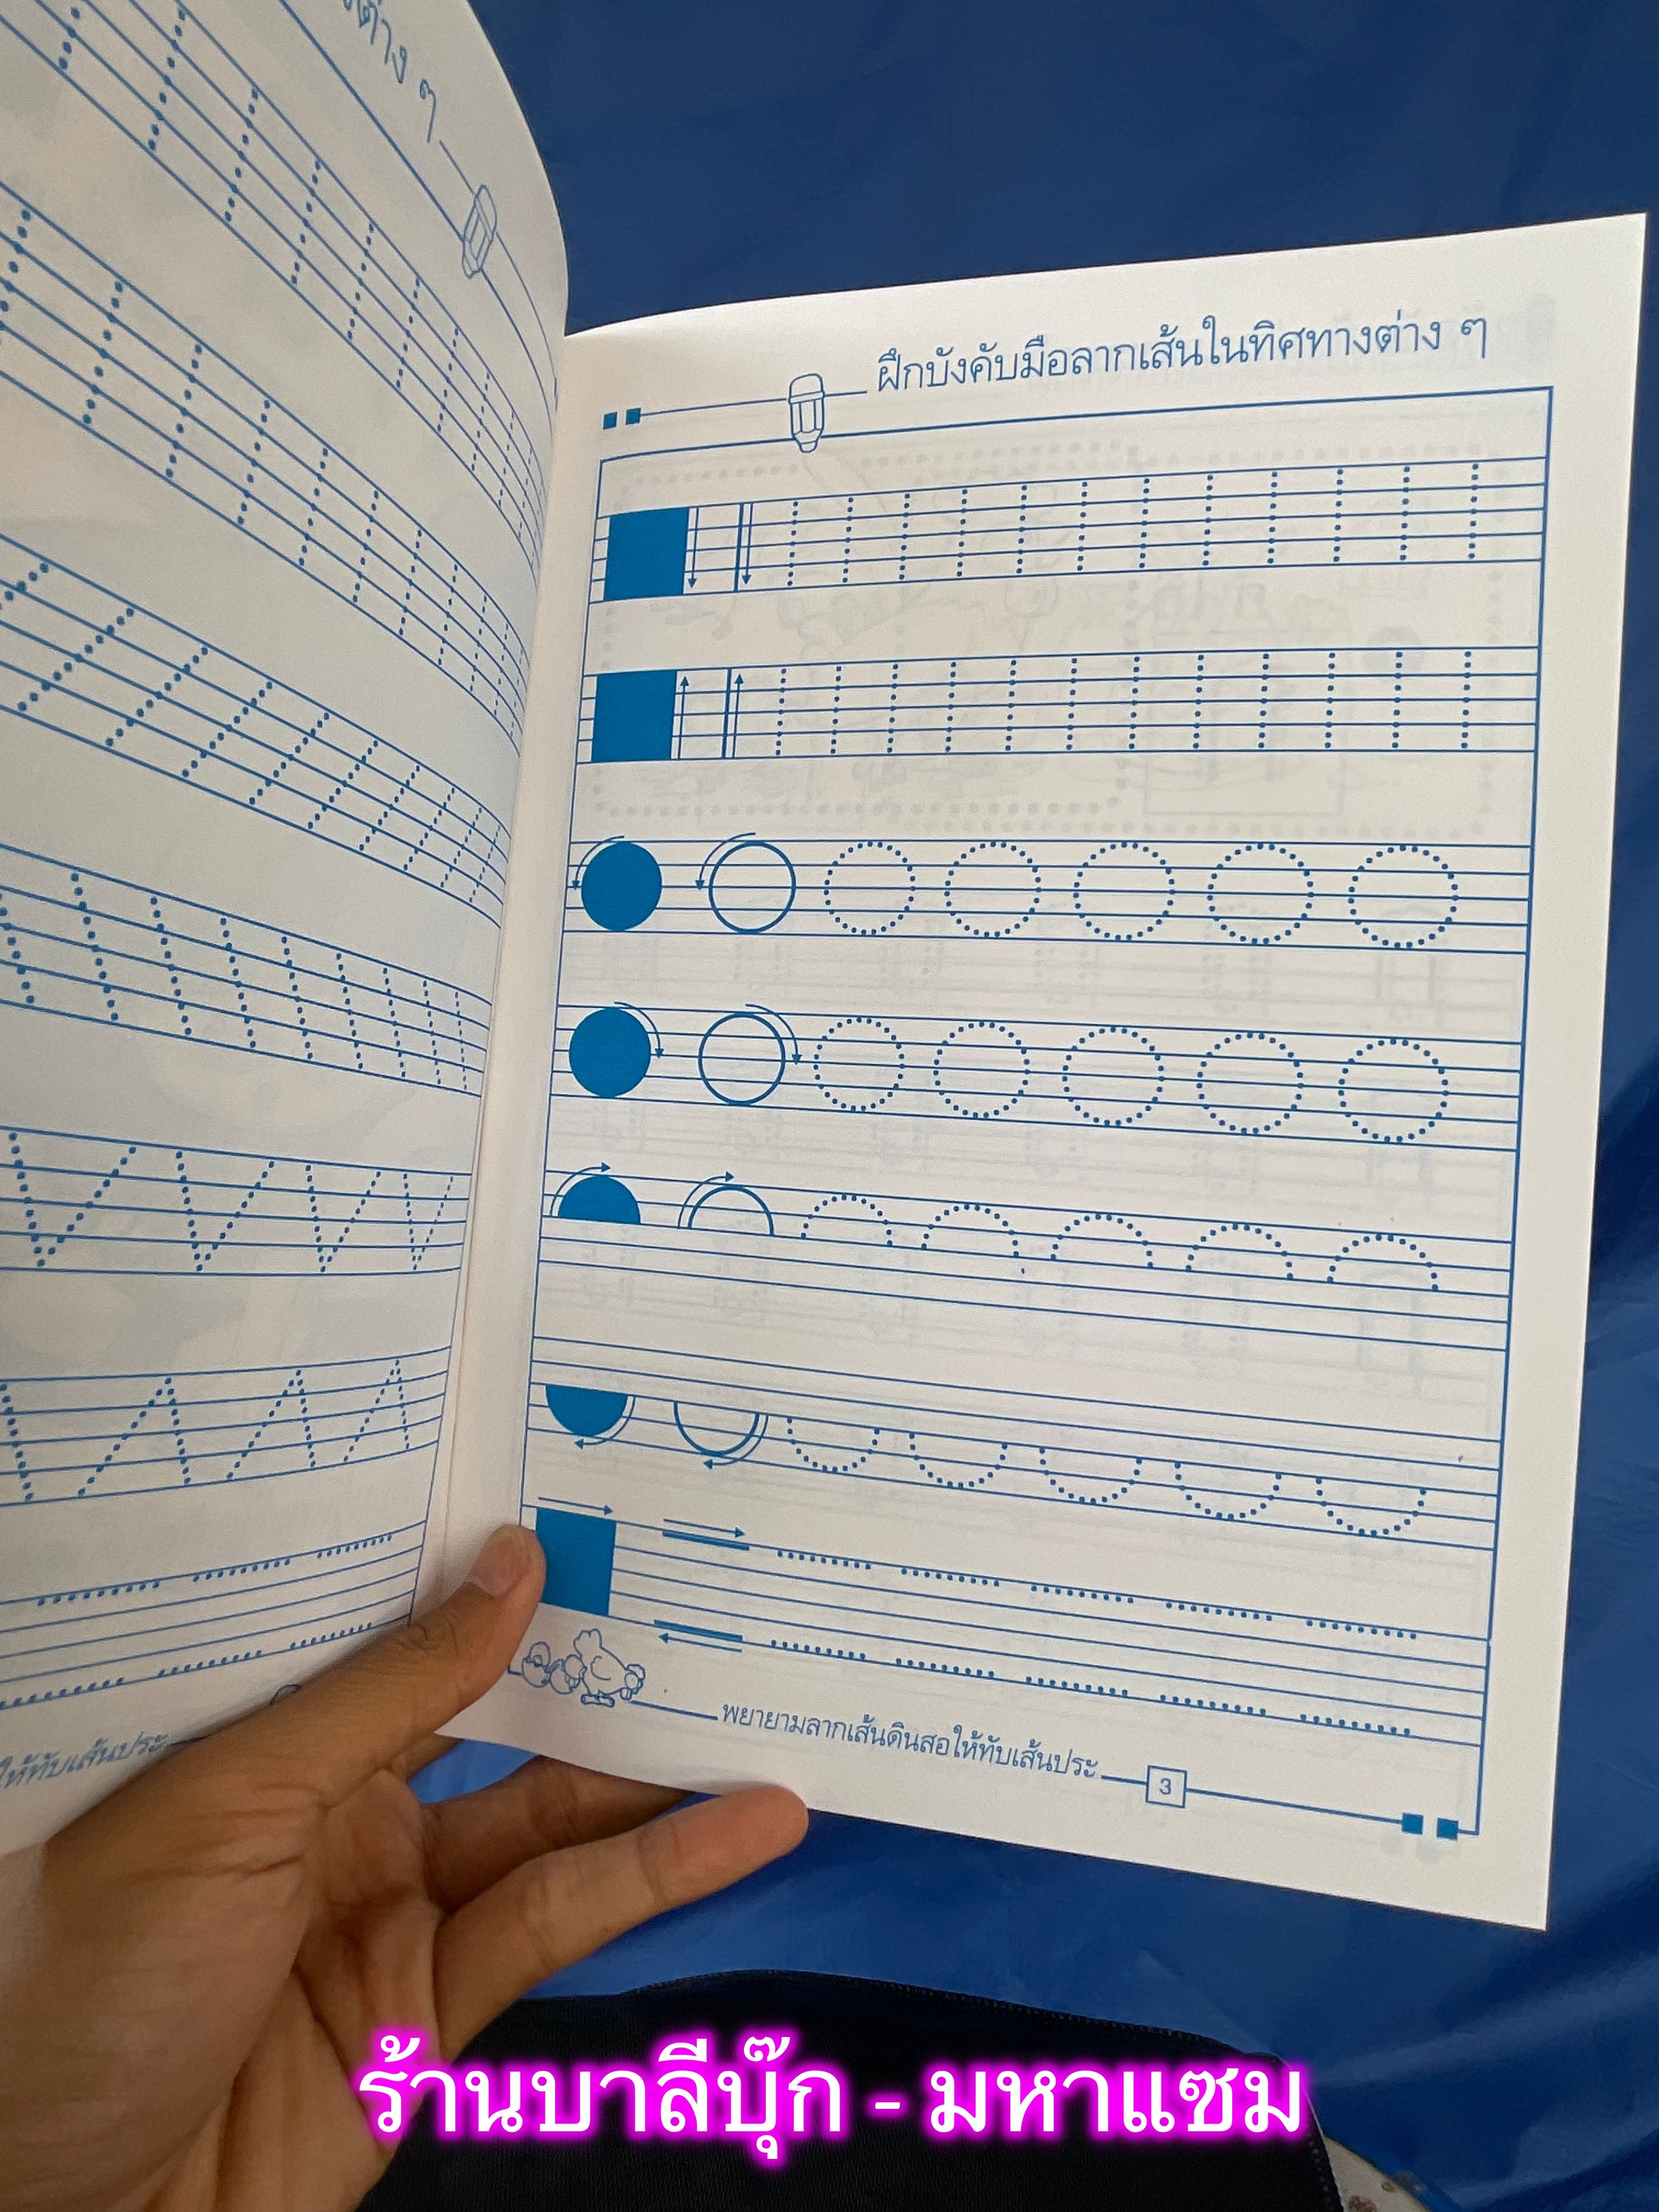 ต่าง ๆ
ให้ทับเส้นประ
ฝึกบังคับมือลากเส้นในทิศทางต่าง ๆ
พยายามลากเส้นดินสอให้ทับเส้นประ
3
ร้านบาลีบุ๊ก - มหาแซม